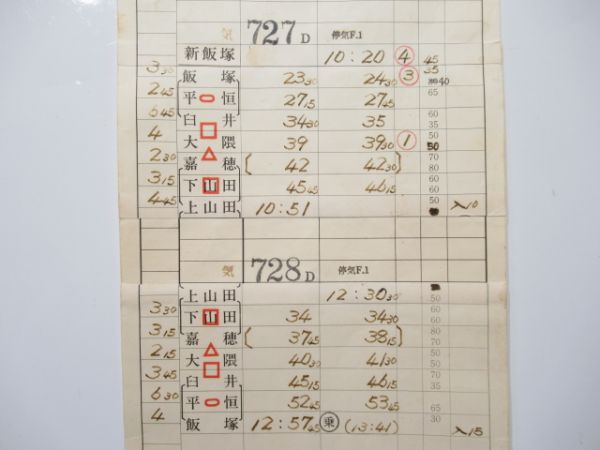 気 727D 停気F.1
新飯塚 10:20 ④ 45
3 30 飯塚 23 30 24 30 ③ 35 40
2 45 平恒 27 15 27 45 65
6 45 臼井 34 30 35 60 35
4 大隈 39 39 30 ① 50 50
2 30 嘉穂 42 42 30 70 80
3 15 下山田 45 45 46 15 60 60
4 45 上山田 10:51 50 入10
気 728D 停気F.1
上山田 12:30 30 50
3 30 下山田 34 34 30 60 60
3 15 嘉穂 37 45 38 15 80 70
2 15 大隈 40 30 41 30 50 70
3 45 臼井 45 15 46 15 35
6 30 平恒 52 45 53 45 65
4 飯塚 12:57 45 乗 (13:41) 30 入15